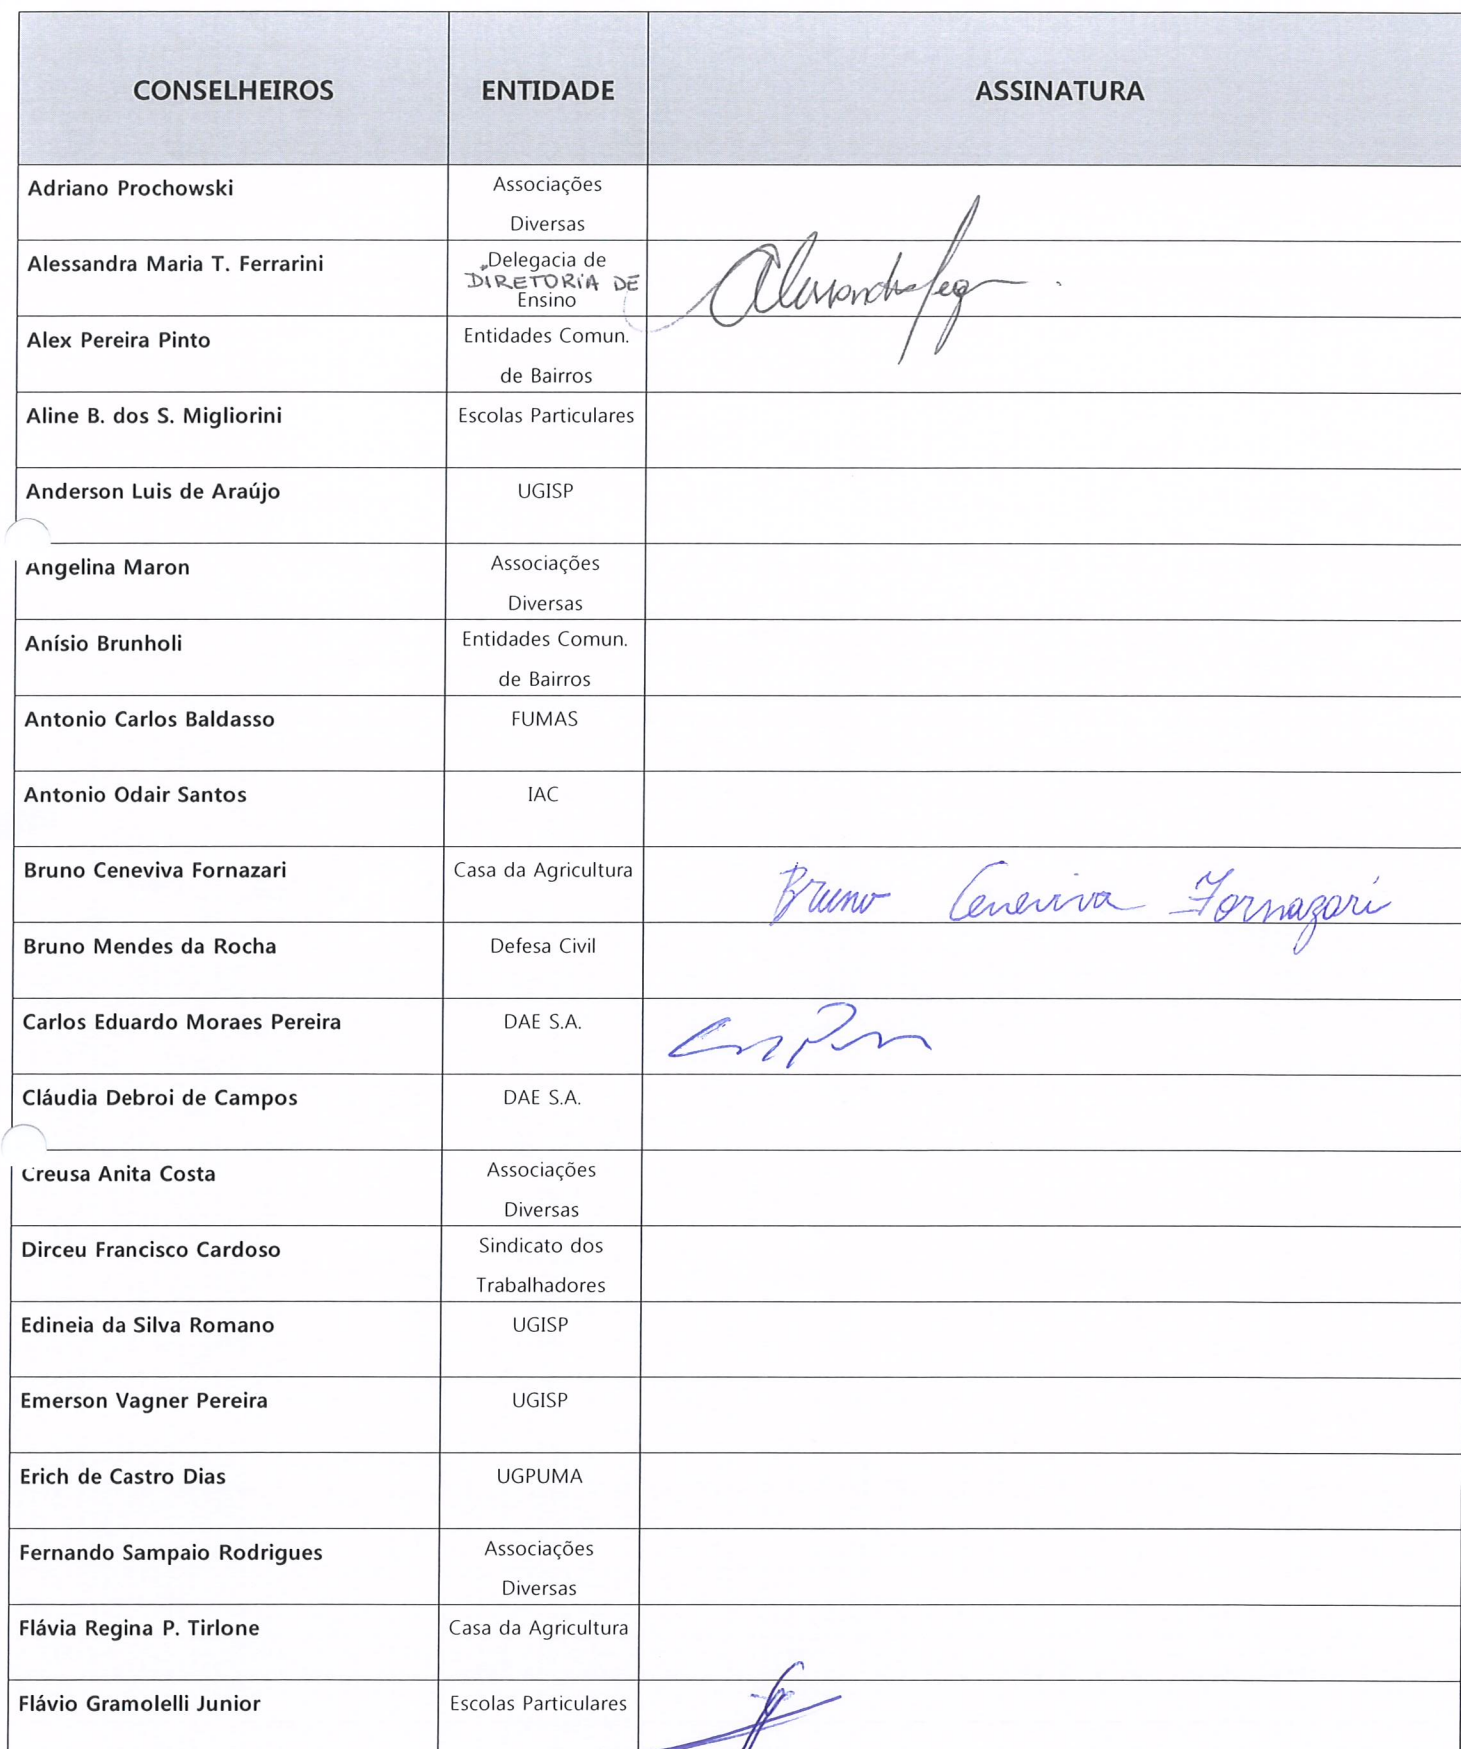 CONSELHEIROS ENTIDADE ASSINATURA
Adriano Prochowski Associações
Diversas
Alessandra Maria T. Ferrarini Delegacia de
DIRETORIA DE
Ensino
Alex Pereira Pinto Entidades Comun.
de Bairros
Aline B. dos S. Migliorini Escolas Particulares
Anderson Luis de Araújo UGISP
Angelina Maron Associações
Diversas
Anísio Brunholi Entidades Comun.
de Bairros
Antonio Carlos Baldasso FUMAS
Antonio Odair Santos IAC
Bruno Ceneviva Fornazari Casa da Agricultura Bruno Ceneviva Fornazari
Bruno Mendes da Rocha Defesa Civil
Carlos Eduardo Moraes Pereira DAE S.A.
Cláudia Debroi de Campos DAE S.A.
Creusa Anita Costa Associações
Diversas
Dirceu Francisco Cardoso Sindicato dos
Trabalhadores
Edineia da Silva Romano UGISP
Emerson Vagner Pereira UGISP
Erich de Castro Dias UGPUMA
Fernando Sampaio Rodrigues Associações
Diversas
Flávia Regina P. Tirlone Casa da Agricultura
Flávio Gramolelli Junior Escolas Particulares